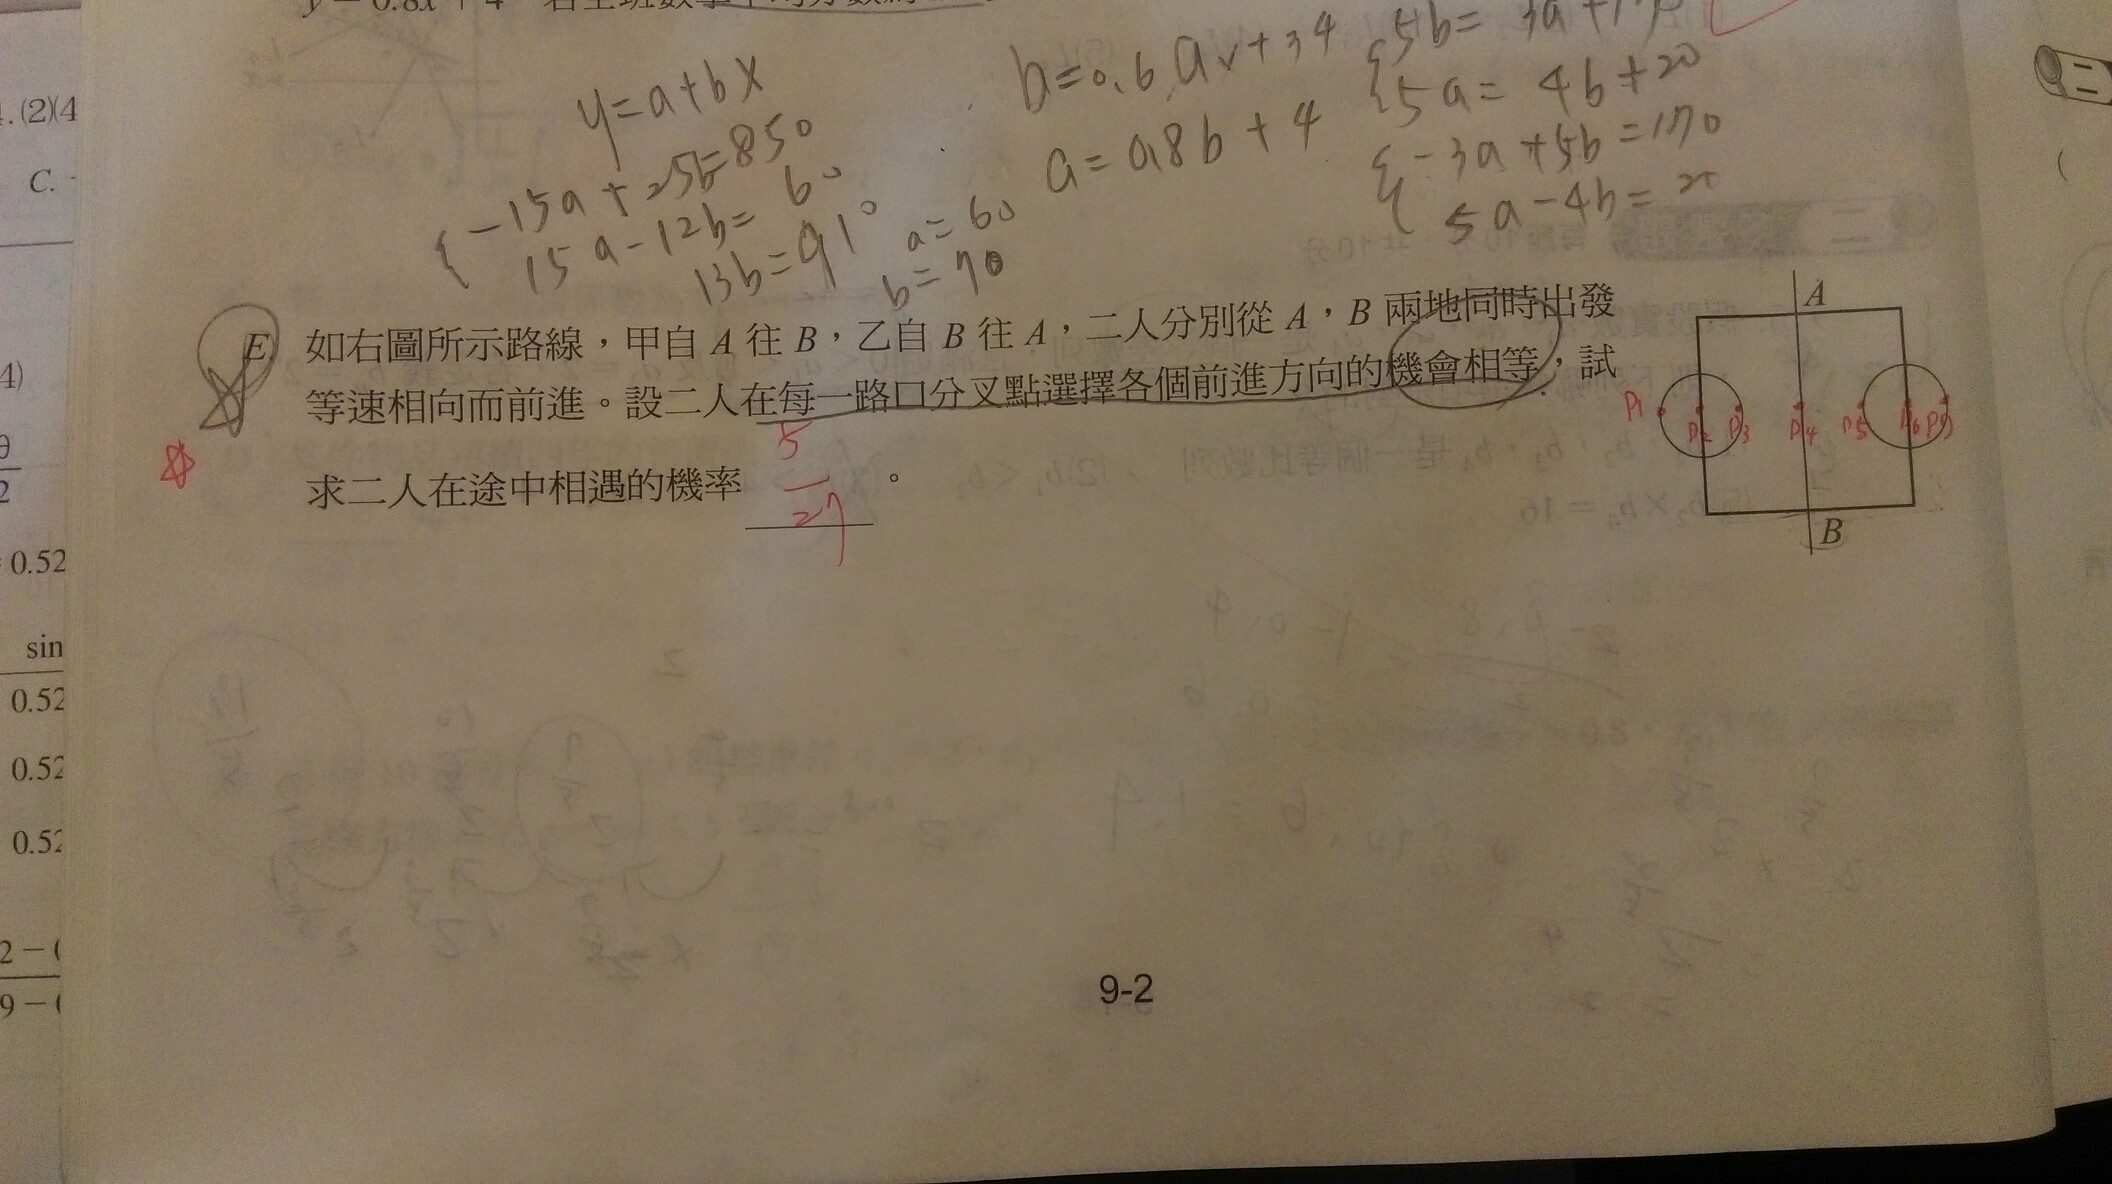 y=a+bx
b=0.6a+34
{5b=3a+170
{5a=4b+20
{-15a+25b=850
15a-12b=60
13b=910
a=60
b=70
a=0.8b+4
{-3a+5b=170
5a-4b=20
.(2)(4
C.
4)
θ
2
0.52
sin
0.52
0.52
0.52
E 如右圖所示路線，甲自 A 往 B，乙自 B 往 A，二人分別從 A，B 兩地同時出發
等速相向而前進。設二人在每一路口分叉點選擇各個前進方向的機會相等，試
求二人在途中相遇的機率 5/27 。
A
P1 P2 P3 P4 P5 P6 P7
B
二
9-2